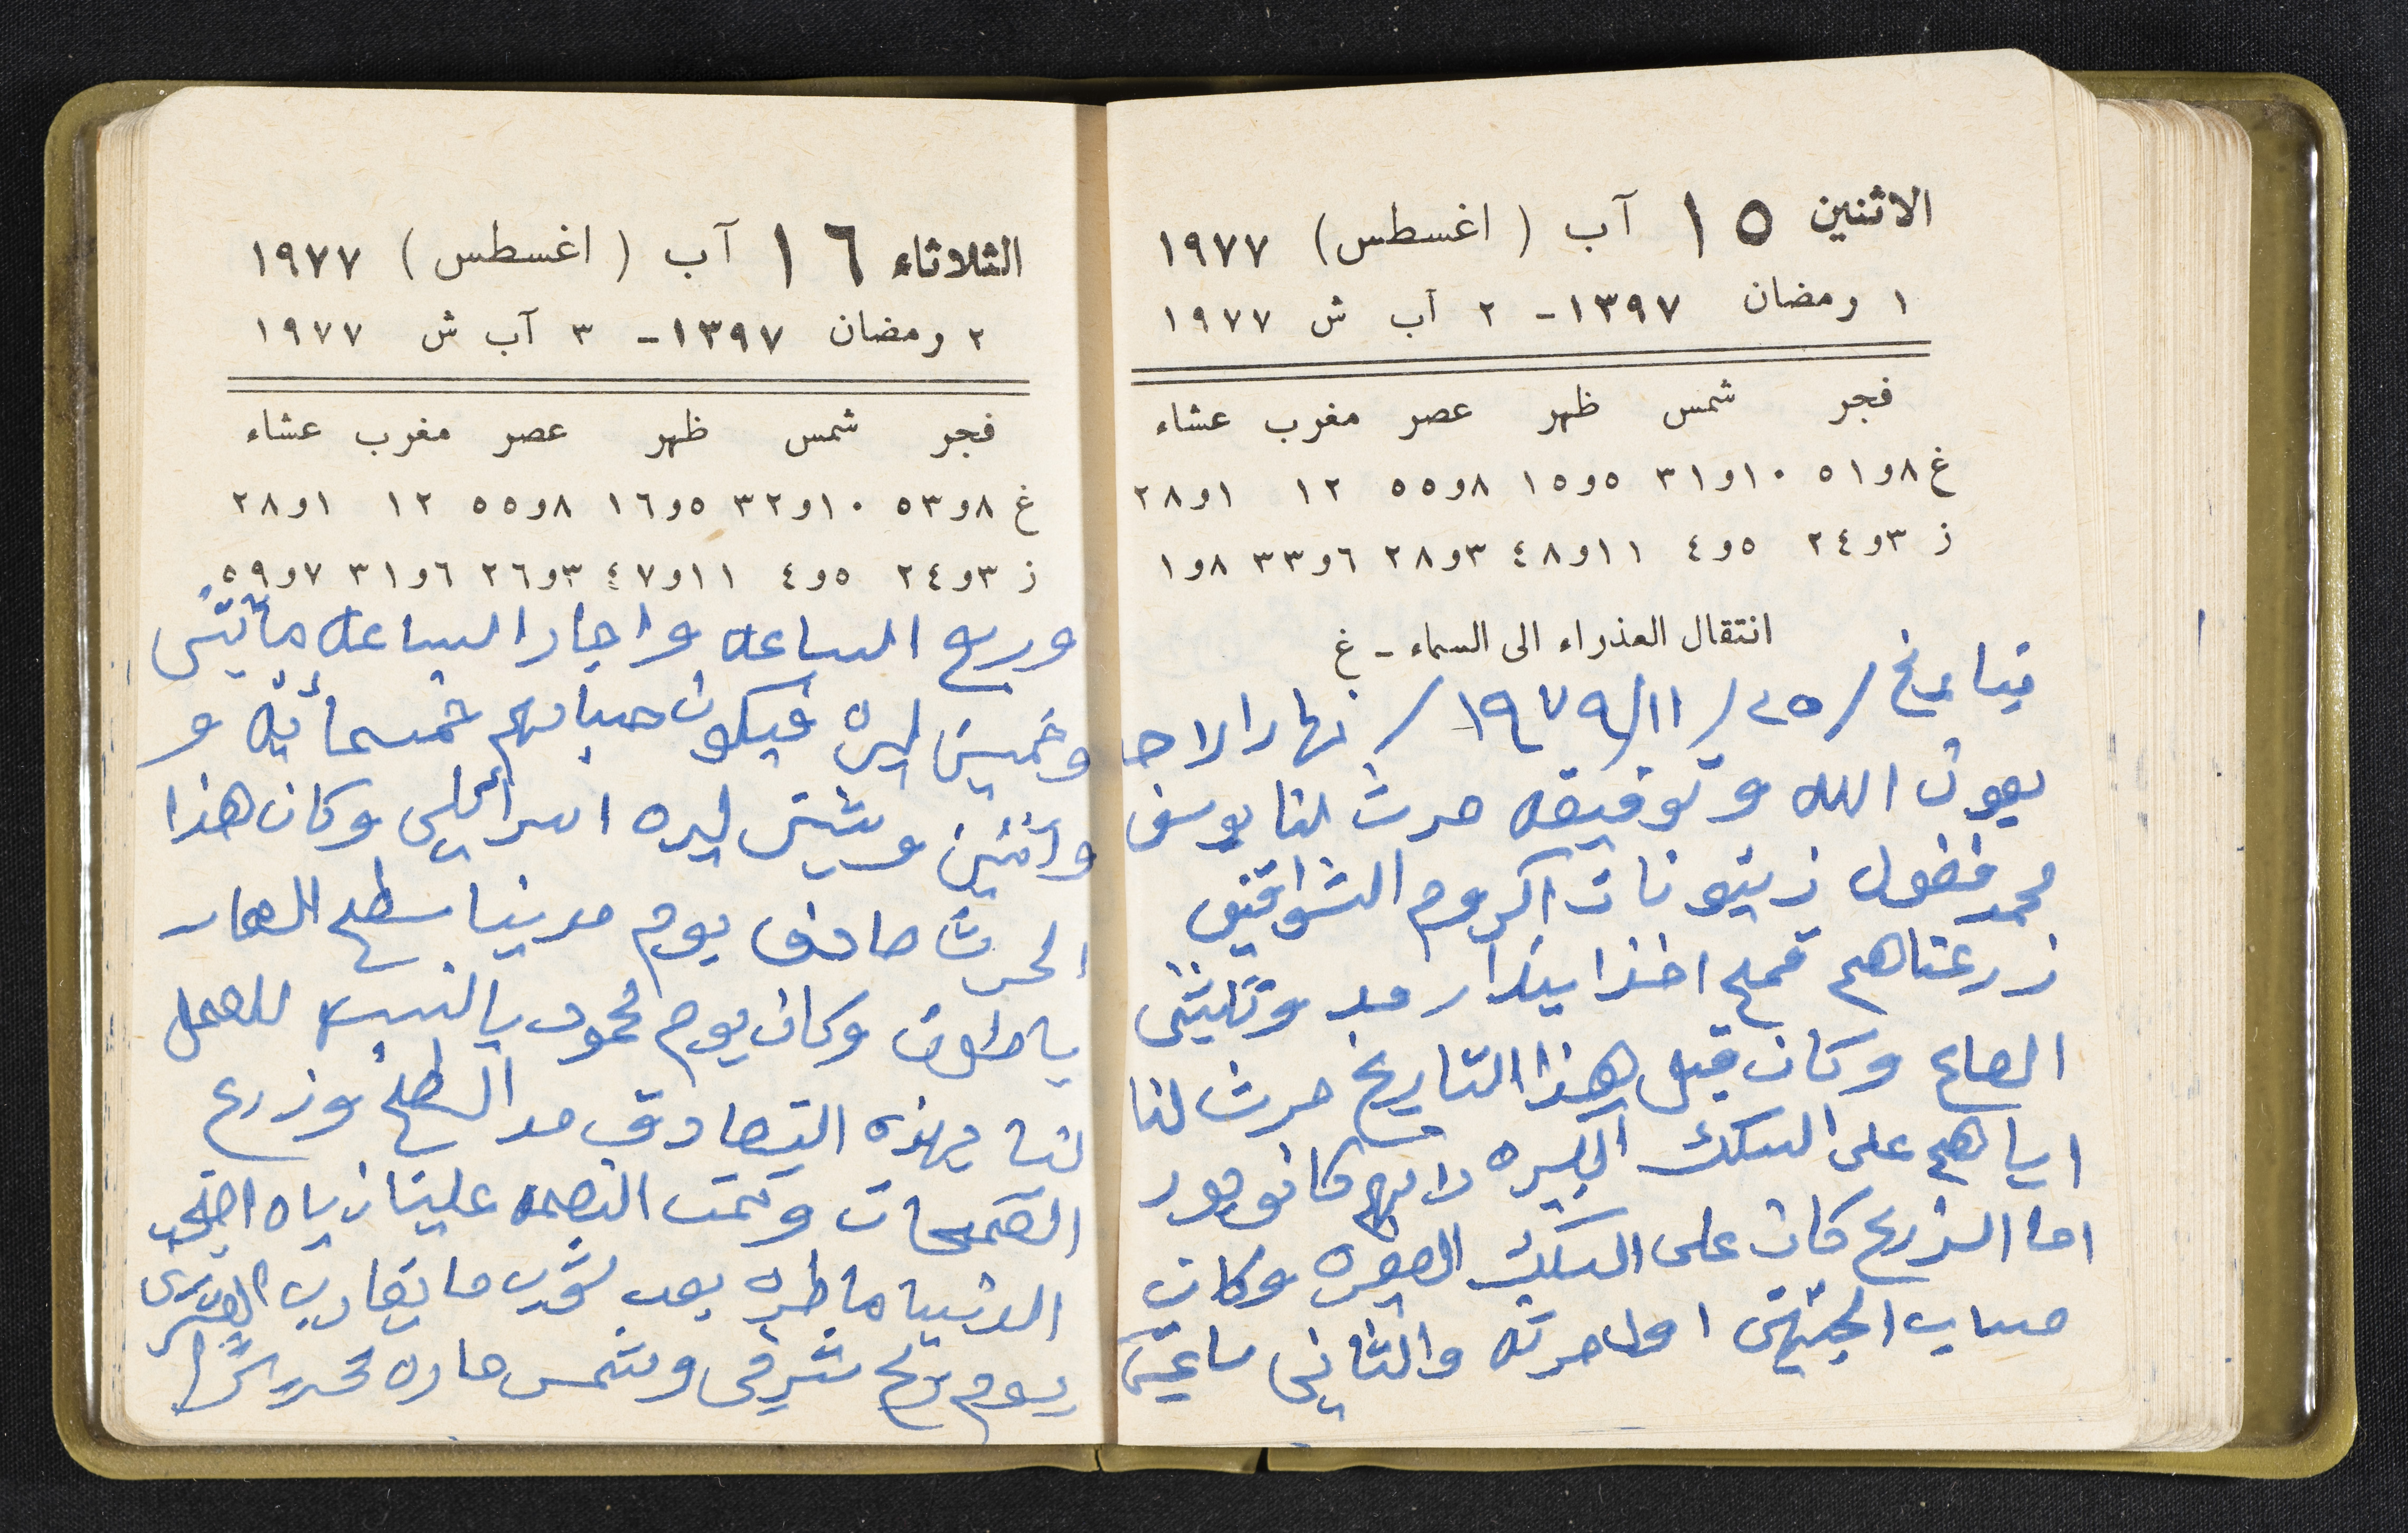 الاثنين ١٥ آب (اغسطس) ١٩٧٧
١ رمضان ١٣٩٧ - ٢ آب ش ١٩٧٧
فجر شمس ظهر عصر مغرب عشاء
غ ٨و٥١ ١٠و٣١ ٥و١٥ ٨و٥٥ ١٢ ١و٢٨
ز ٣و٢٤ ٥و٤ ١١و٤٨ ٣و٢٨ ٦و٣٣ ٨و١
انتقال العذراء الى السماء - غ
بتاريخ /٢٥/١١/١٩٧٩/ نهار الاحد
بعون الله وتوفيقه حرث لنا يوسف
محمد فضول زيتونات اكروم الشواقيق
زرعناهم قمح اخذا بيذار مد وثليثي
الصاع وكان قبل هذا التاريخ حرث لنا
اياهم على السكه الكبيره لانهم كانو بور
اما الزرع كان على السكه الصغيره وكان
حساب الجهتين اول حرثه والثاني ساعتين
الثلاثاء ١٦ آب (اغسطس) ١٩٧٧
٢ رمضان ١٣٩٧ - ٣ آب ش ١٩٧٧
فجر شمس ظهر عصر مغرب عشاء
غ ٨و٥٣ ١٠و٣٢ ٥و١٦ ٨و٥٥ ١٢ ١و٢٨
ز ٣و٢٤ ٥و٤ ١١و٤٧ ٣و٢٦ ٦و٣١ ٧و٥٩
وربع الساعه واجار الساعه مائتين
وخمسين ليره فيكون حسابهم خمسمائه و
واثنين وستين ليره اسرائيلي وكان هذا
الحرث صادف يوم مدينا سطح الدار
باطون وكان يوم محمود بالنسبه للعمل
لنا بهذه التصادق مد السطح وزرع
القمحات وتمت النعمه علينا زياه اضحت
الدنيا ماطره بعد شوب ما يقارب العشرين
يوم ريح شرقي وشمس حاره